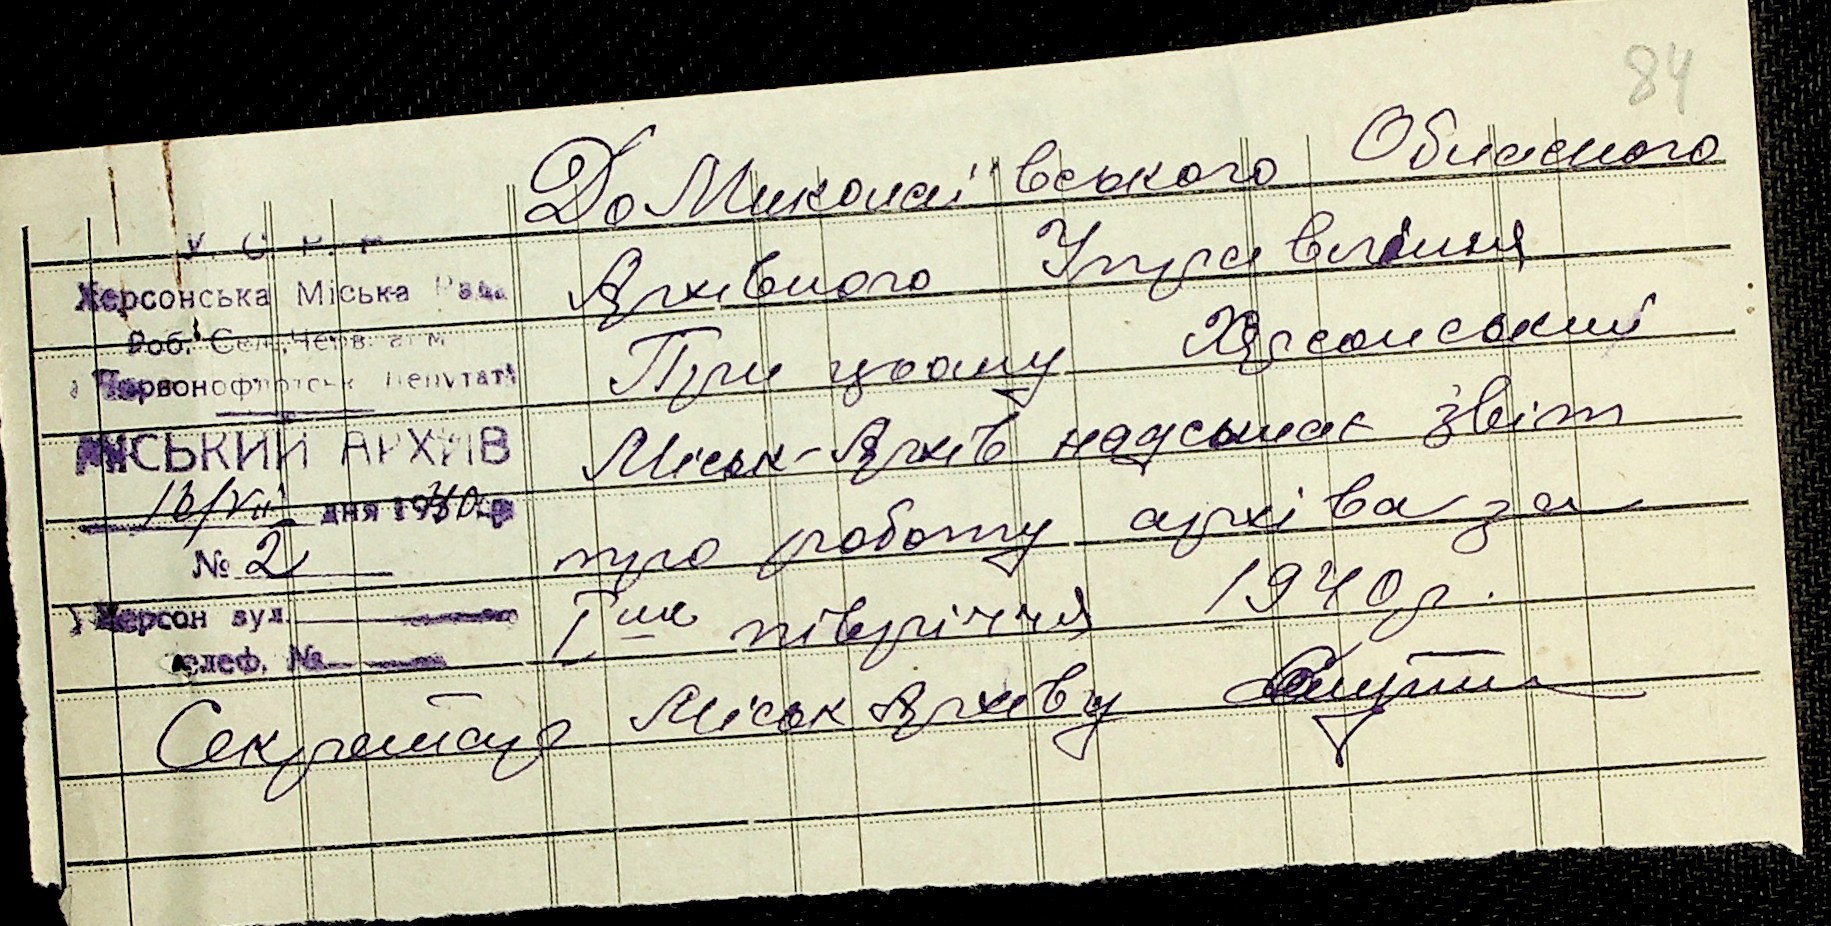 84
До Миколаївського Обласного
Архівного Управління
При цьому Херсонський
Міськ-Архів надсилає звіт
про роботу архіва за
І ше півріччя 1940 р.
Секретар Міськ Архіву
У. С. Р. Р.
Херсонська Міська Рада
Роб. Сел., Черв. та
Червонофлотськ Депутатів
МІСЬКИЙ АРХИВ
16/VII дня 1940 р
№ 2
Херсон вул.
телеф. №